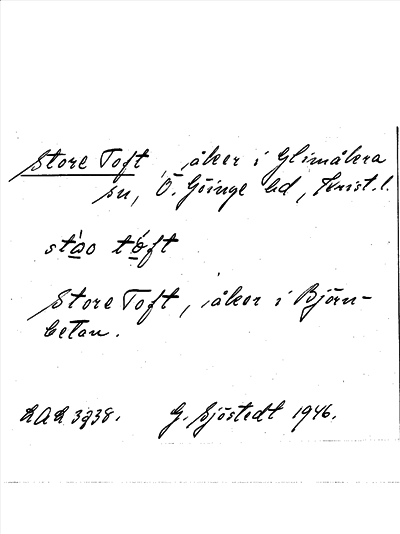 Store Toft, åker i Glimåkra
sn, Ö. Göinge hd, Krist. l.
stao toft
Store Toft, åker i Björn-
betan.
LAL 3938. G. Sjöstedt 1946.